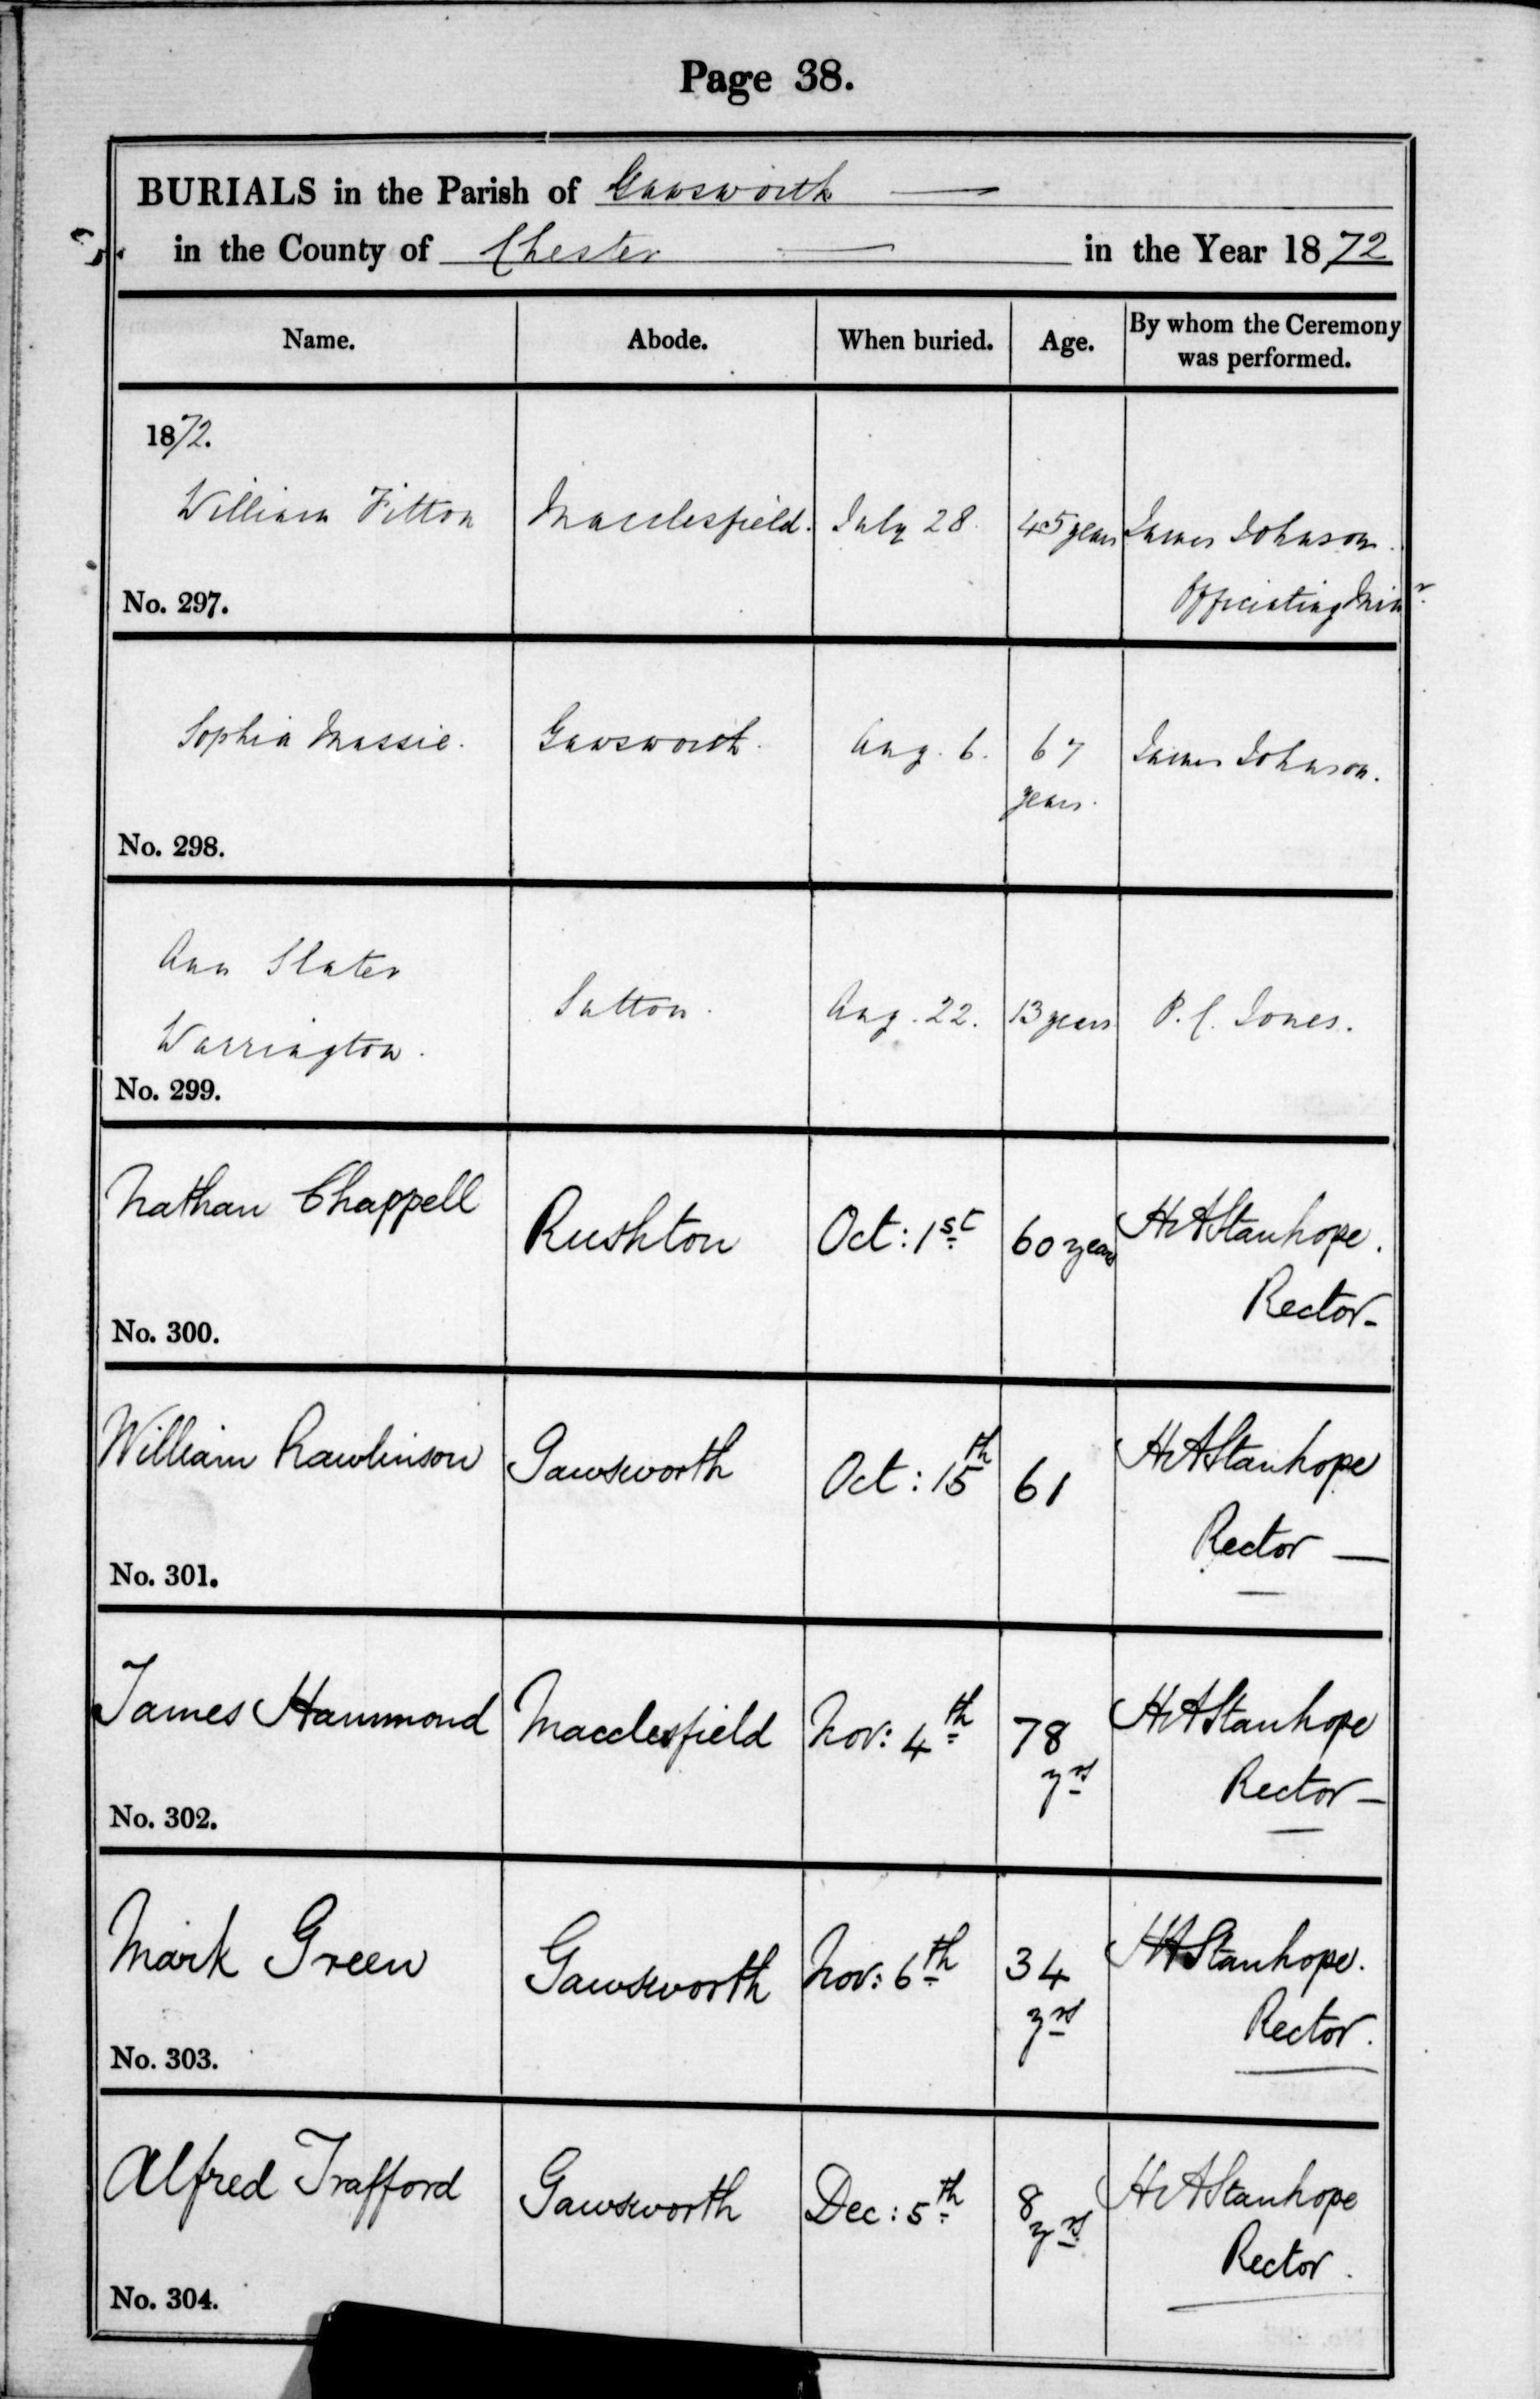 Page 38.
BURIALS in the Parish of Gawsworth —
in the County of Chester — in the Year 1872
Name. Abode. When buried. Age. By whom the Ceremony was performed.
1872.
William Fitton Macclesfield. July 28. 45 years James Johnson.
Officiating Minr.
No. 297.
Sophia Massie. Gawsworth. Aug. 6. 67 years. James Johnson.
No. 298.
Ann Slater
Warrington. Sutton. Aug. 22. 13 years P. C. Jones.
No. 299.
Nathan Chappell Rushton Oct: 1st 60 years HAStanhope.
Rector-
No. 300.
William Rawlinson Gawsworth Oct: 15th 61 HAStanhope
Rector —
No. 301.
James Hammond Macclesfield Nov: 4th 78 yrs HAStanhope
Rector-
No. 302.
Mark Green Gawsworth Nov: 6th 34 yrs HAStanhope.
Rector.
No. 303.
Alfred Trafford Gawsworth Dec: 5th 8 yrs HAStanhope
Rector.
No. 304.